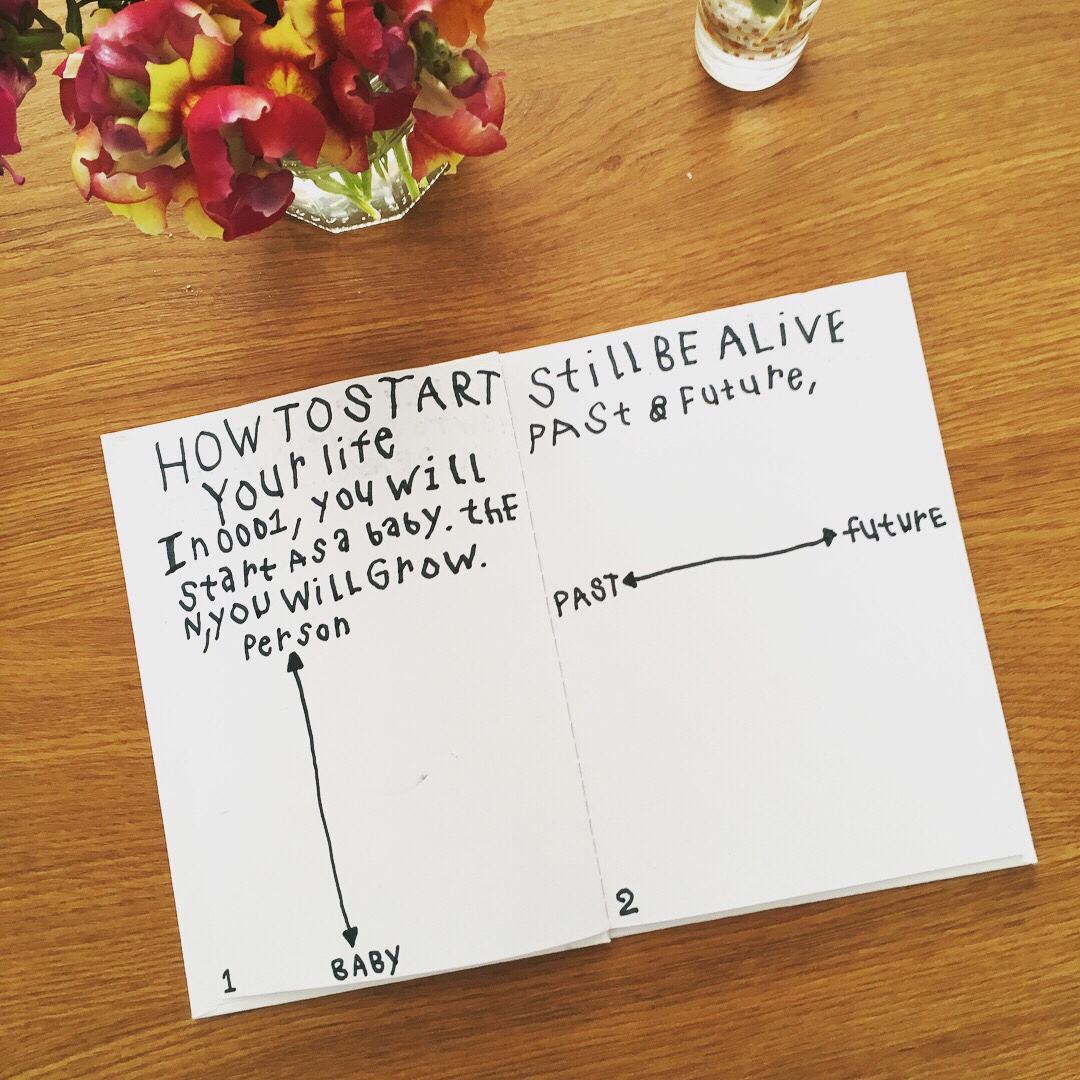 HOW TO START
Your life
In 0001, you will
Start As a baby. thE
N, you WiLL GroW.
Person
BABY
1
Still BE ALiVE
PASt & Future,
PAST
futurE
2